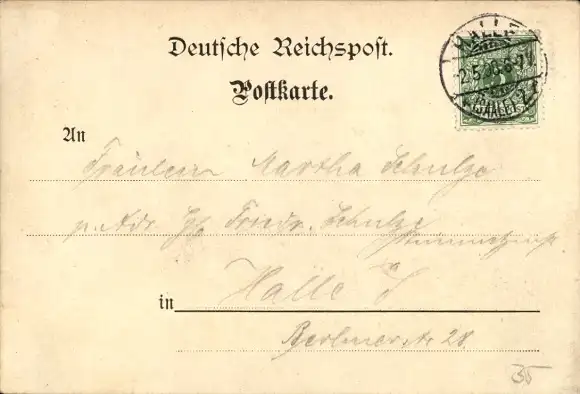 Deutsche Reichspost.
Postkarte.
HALLE
2.5.98.6-7N
(SAALE)
An
Fräulein Martha Schulze
p. Adr. Friedr. Schulze
in Halle S
Berlinerstr 28
35